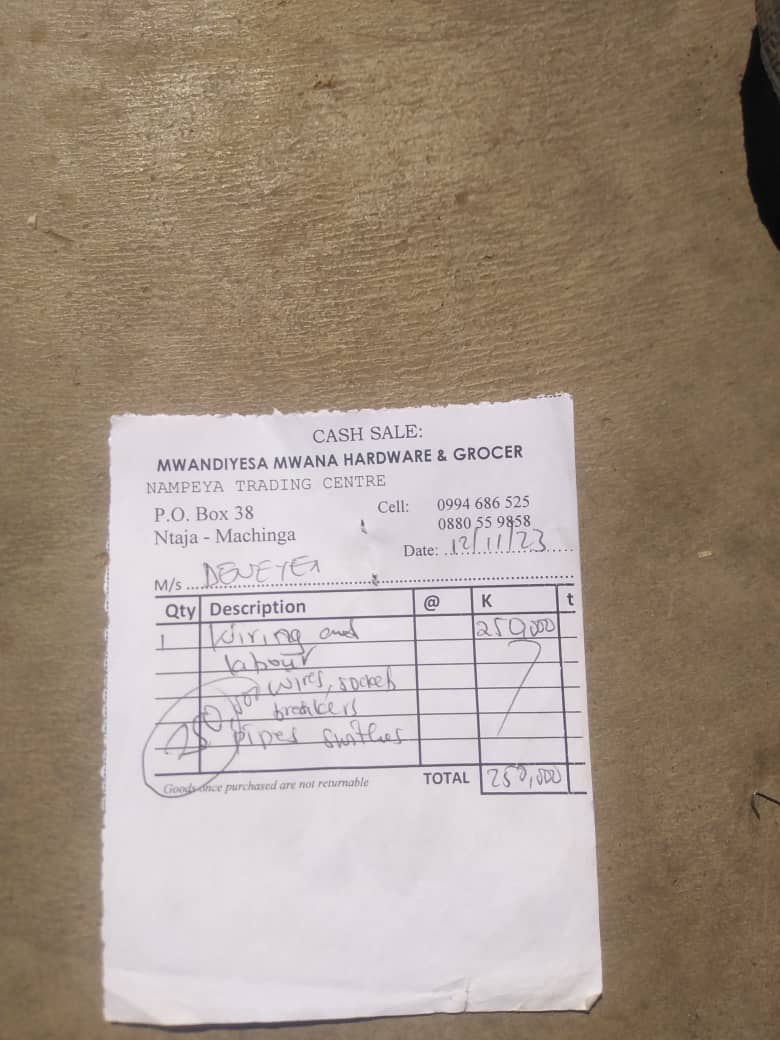 CASH SALE:
MWANDIYESA MWANA HARDWARE & GROCER
NAMPEYA TRADING CENTRE
P.O. Box 38 Cell: 0994 686 525
0880 55 9858
Ntaja - Machinga
Date: 12/11/23
M/s
Qty Description @ K t
1 Wiring and 250,000
labour
wires, socket
breakers
pipes switches
Goods once purchased are not returnable TOTAL 250,000